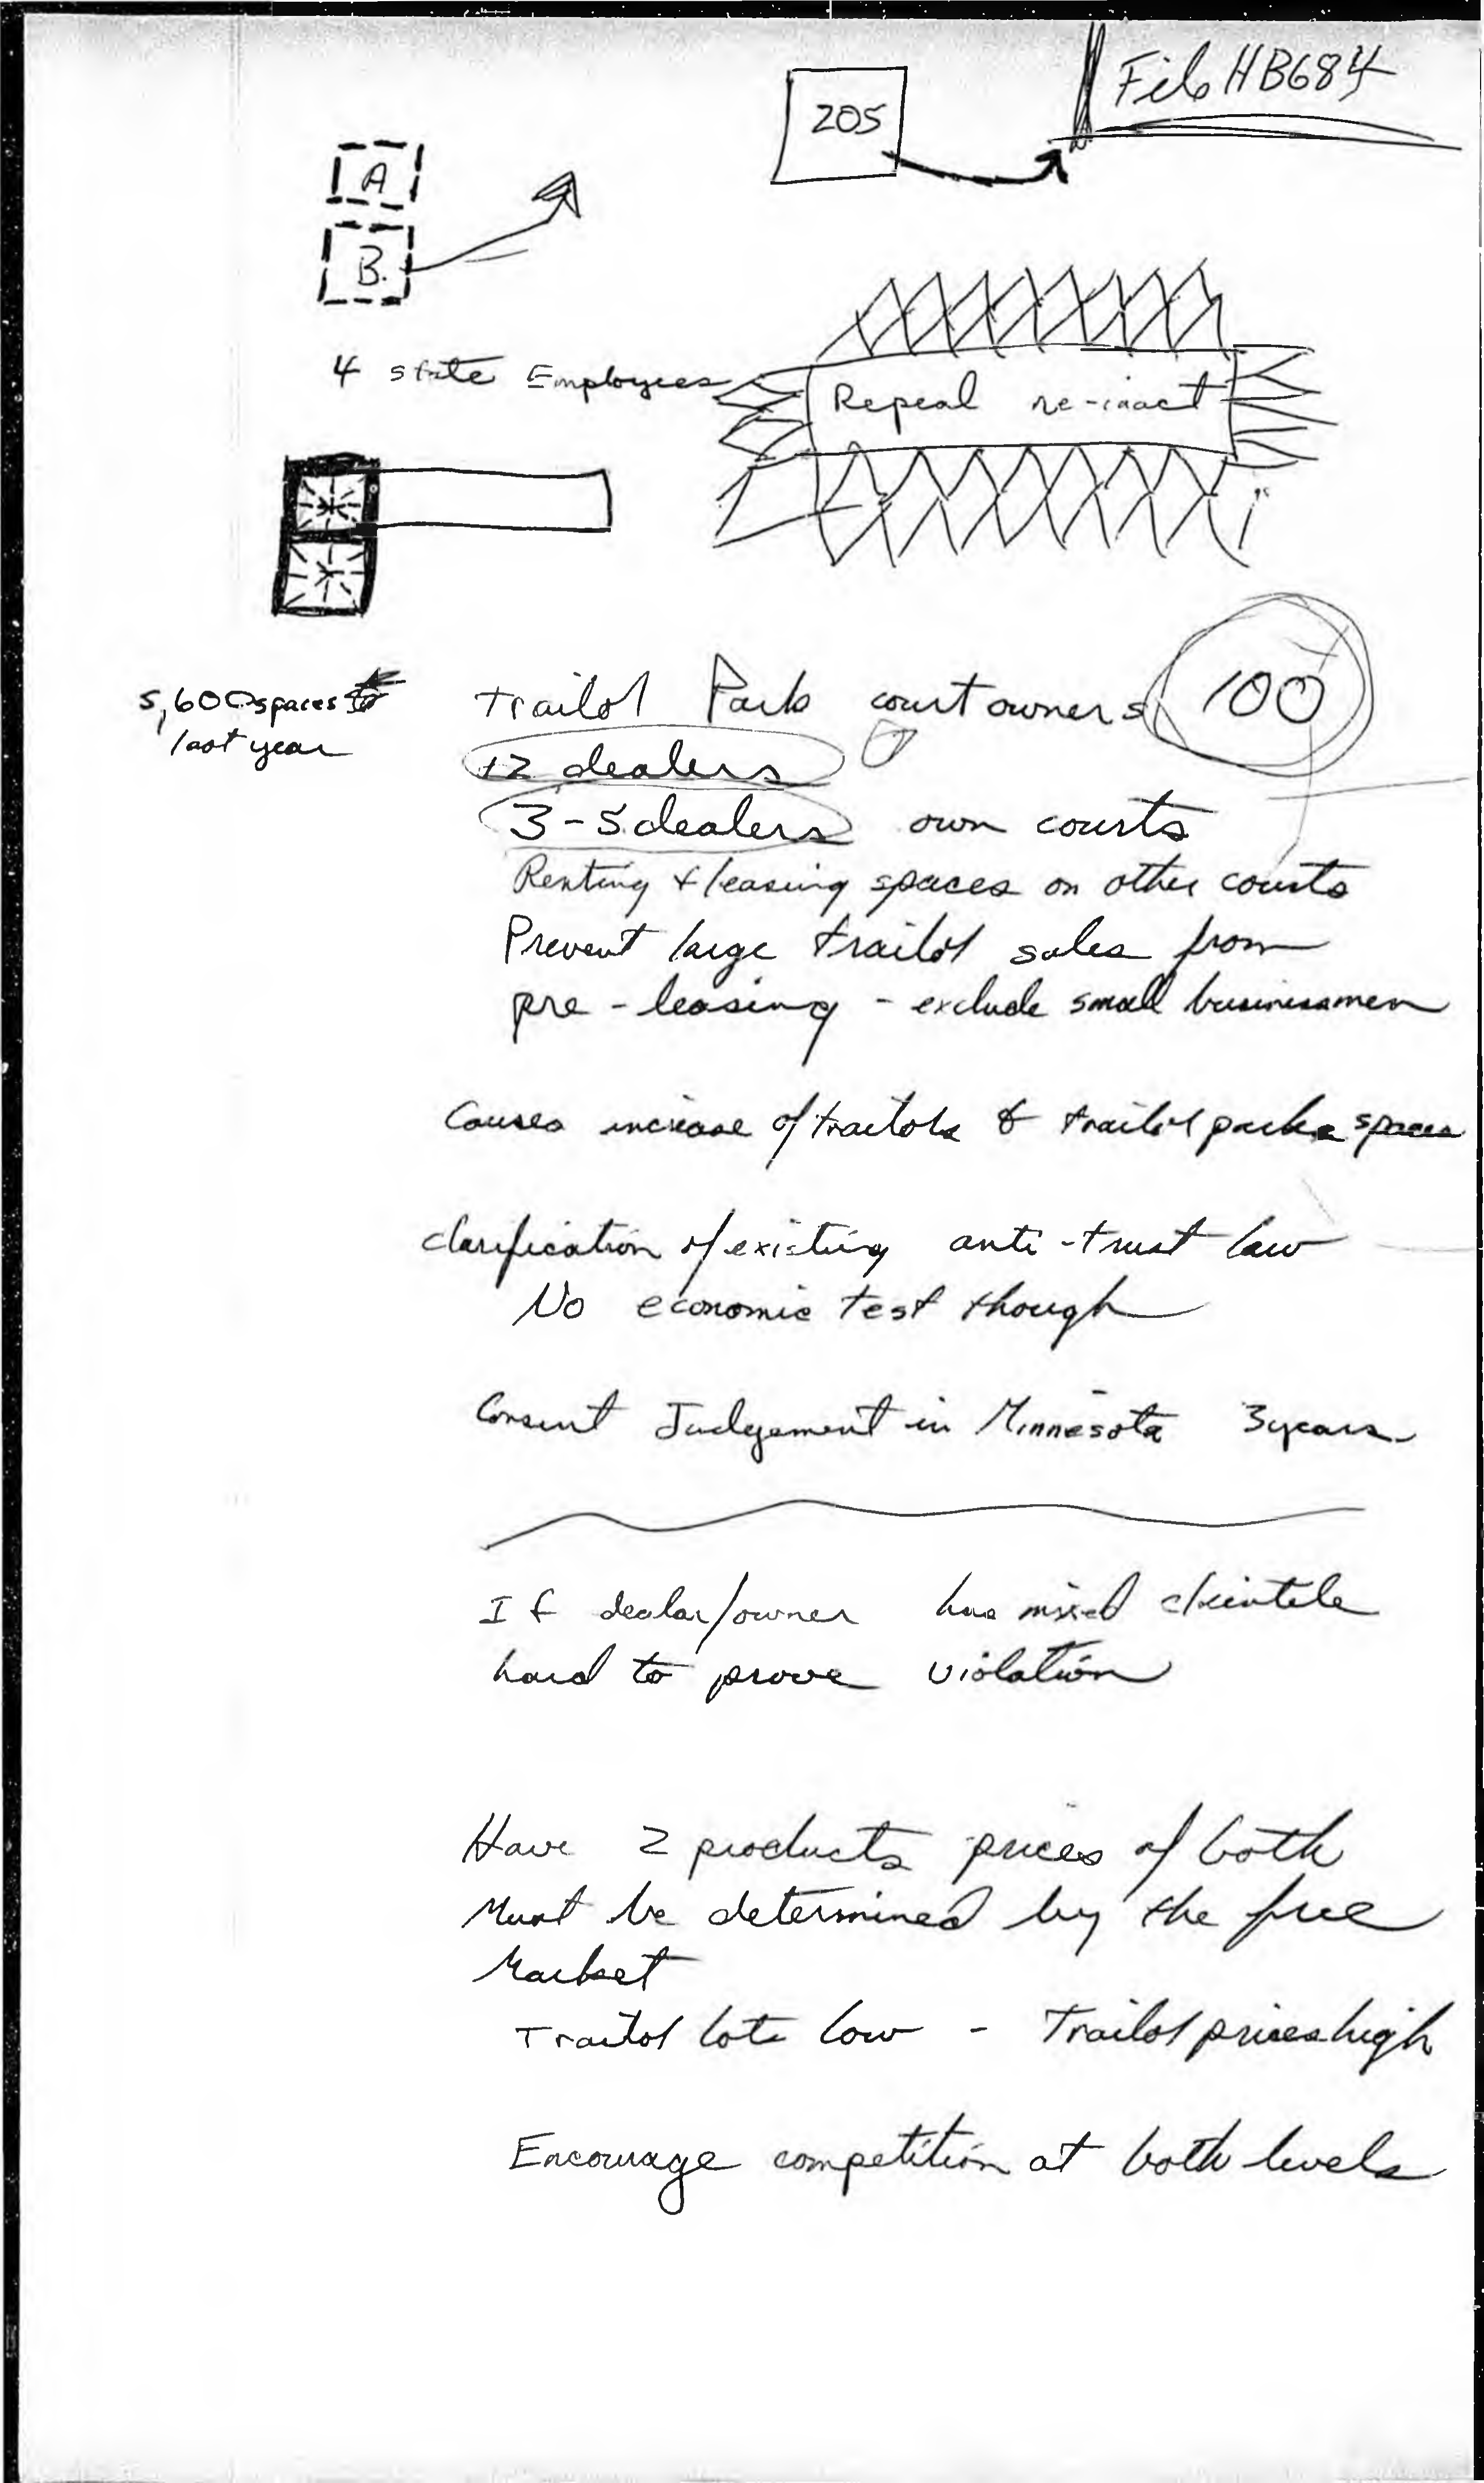 File HB684
205
A
B.
4 state Employees
Repeal re-inact
5,600 spaces
last year
Trailor Park court owners 100
12 dealers
3-5 dealers own courts
Renting & leasing spaces on other courts
Prevent large trailor sales from
pre-leasing - exclude small businessmen
Causes increase of trailors & trailor parks spaces
clarification of existing anti-trust law
No economic test though
Consent Judgement in Minnesota 3 years
If dealer/owner has mixed clientele
hard to prove violation
Have 2 products prices of both
Must be determined by the free
Market
Trailor lots low - Trailor prices high
Encourage competition at both levels